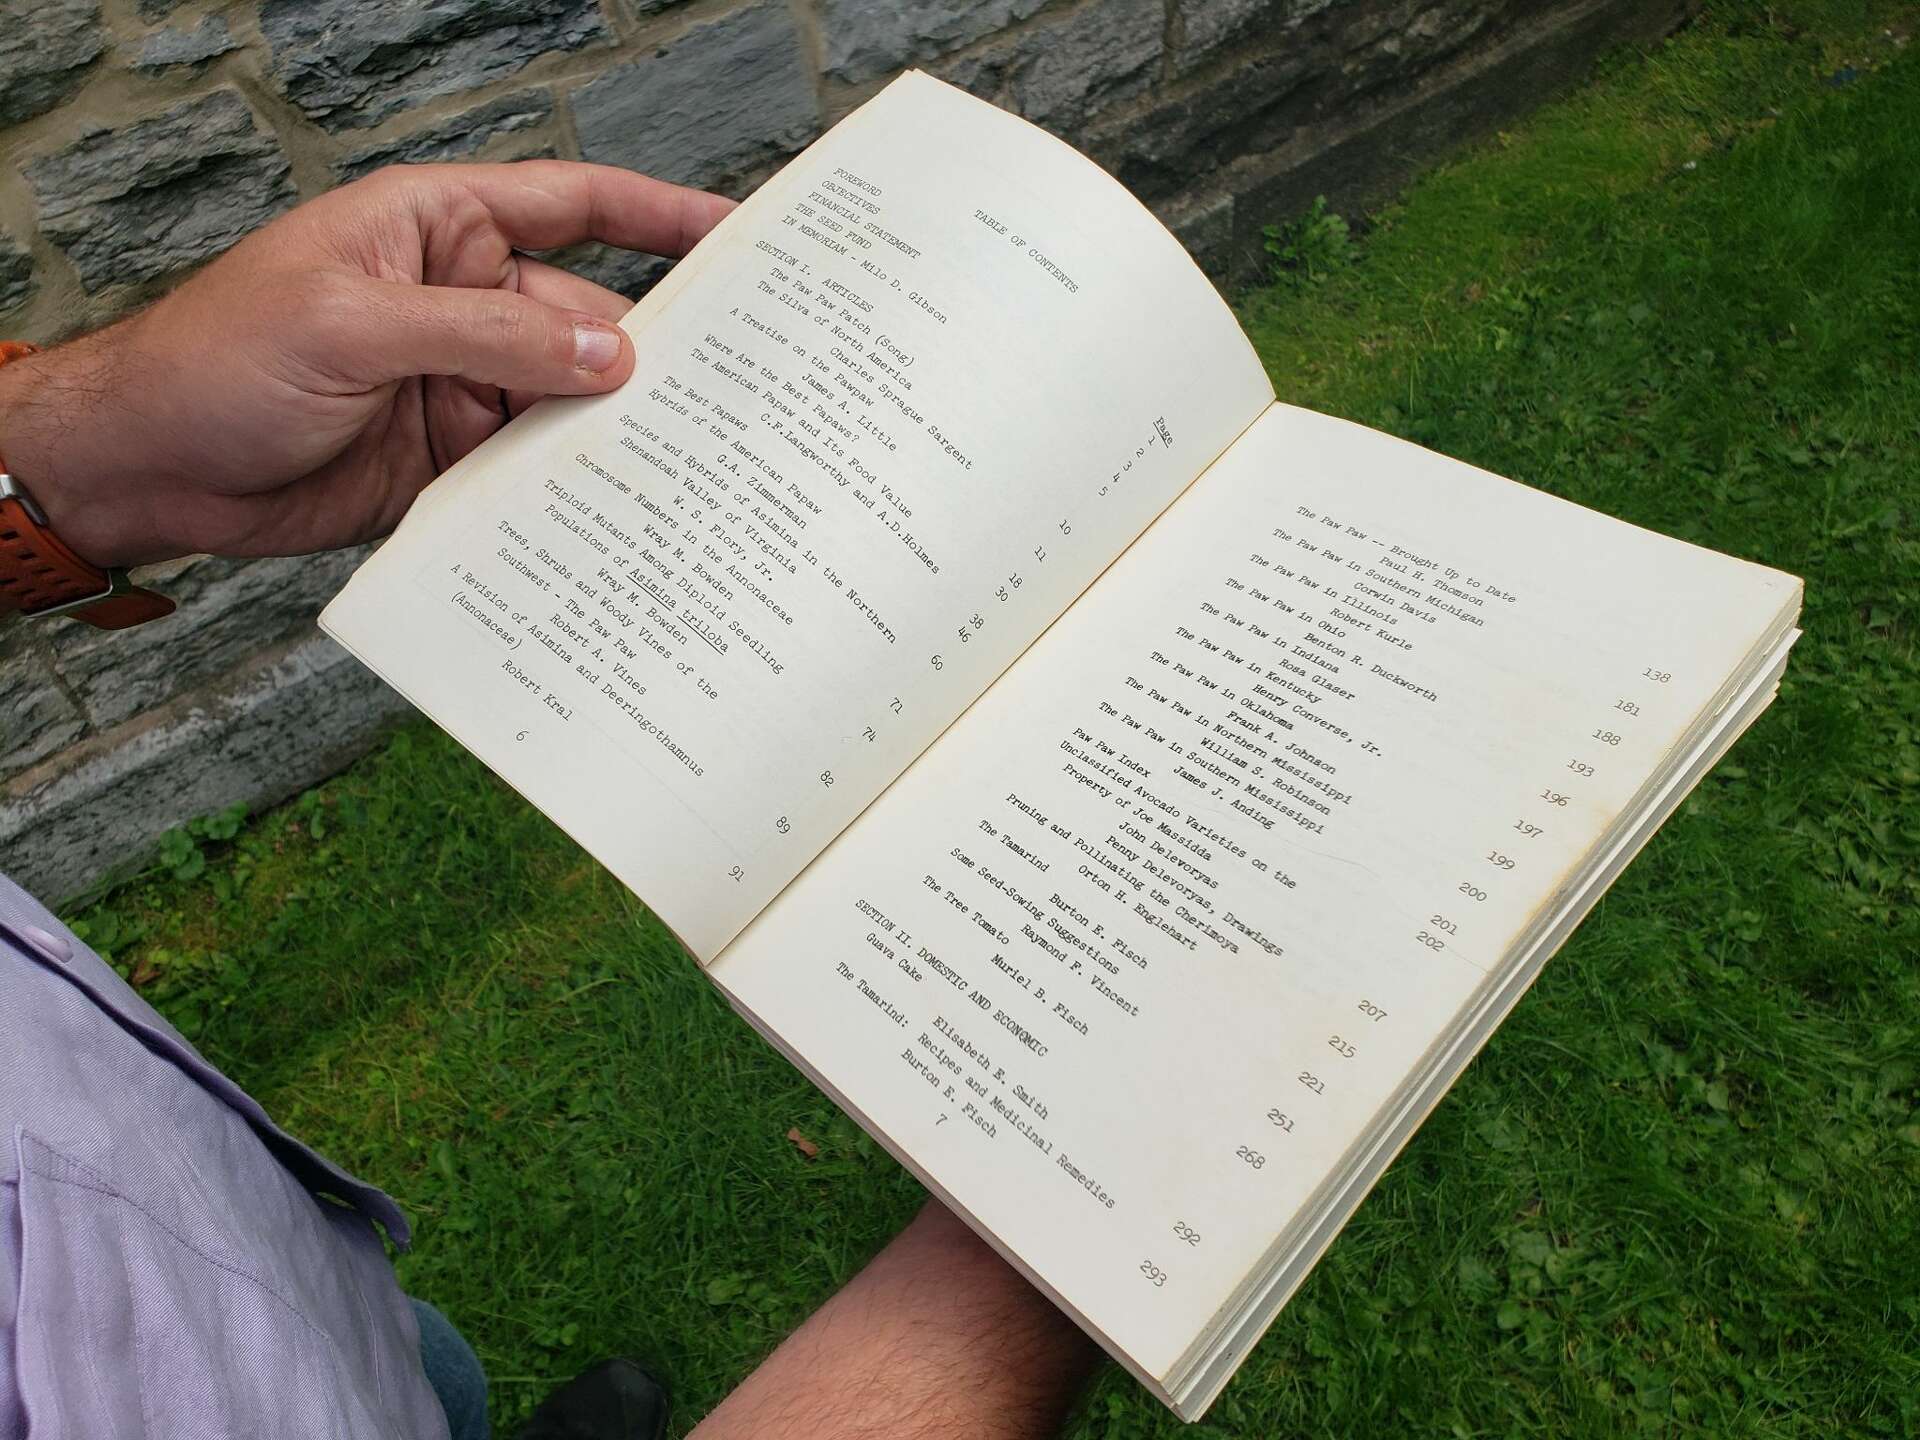 TABLE OF CONTENTS
Page
FOREWORD 1
OBJECTIVES 2
FINANCIAL STATEMENT 3
THE SEED FUND 4
IN MEMORIAM - Milo D. Gibson 5
SECTION I. ARTICLES
The Paw Paw Patch (Song) 10
The Silva of North America
Charles Sprague Sargent 11
A Treatise on the Pawpaw
James A. Little 18
Where Are the Best Papaws? 30
The American Papaw and Its Food Value
C.F.Langworthy and A.D.Holmes 38
The Best Papaws 46
Hybrids of the American Papaw
G.A. Zimmerman 60
Species and Hybrids of Asimina in the Northern
Shenandoah Valley of Virginia
W. S. Flory, Jr. 71
Chromosome Numbers in the Annonaceae
Wray M. Bowden 74
Triploid Mutants Among Diploid Seedling
Populations of Asimina triloba
Wray M. Bowden 82
Trees, Shrubs and Woody Vines of the
Southwest - The Paw Paw
Robert A. Vines 89
A Revision of Asimina and Deeringothamnus
(Annonaceae)
Robert Kral 91
6
The Paw Paw -- Brought Up to Date
Paul H. Thomson 138
The Paw Paw in Southern Michigan
Corwin Davis 181
The Paw Paw in Illinois
Robert Kurle 188
The Paw Paw in Ohio
Benton R. Duckworth 193
The Paw Paw in Indiana
Rosa Glaser 196
The Paw Paw in Kentucky
Henry Converse, Jr. 197
The Paw Paw in Oklahoma
Frank A. Johnson 199
The Paw Paw in Northern Mississippi
William S. Robinson 200
The Paw Paw in Southern Mississippi
James J. Anding 201
Paw Paw Index 202
Unclassified Avocado Varieties on the
Property of Joe Massidda
John Delevoryas
Penny Delevoryas, Drawings 207
Pruning and Pollinating the Cherimoya
Orton H. Englehart 215
The Tamarind
Burton E. Fisch 221
Some Seed-Sowing Suggestions
Raymond F. Vincent 251
The Tree Tomato
Muriel B. Fisch 268
SECTION II. DOMESTIC AND ECONOMIC
Guava Cake
Elisabeth E. Smith 292
The Tamarind: Recipes and Medicinal Remedies
Burton E. Fisch 293
7